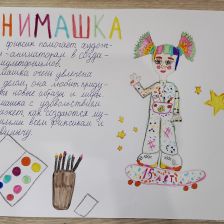 НИМАШКА
фиксик помогает художн
-аниматорам в созда-
мультфильмов.
машка очень увлечена
делом, она любит приду-
новые образы и идеи
машка с удовольствием
жет, как создаются му-
льмы всем фиксикам и
15 лет!